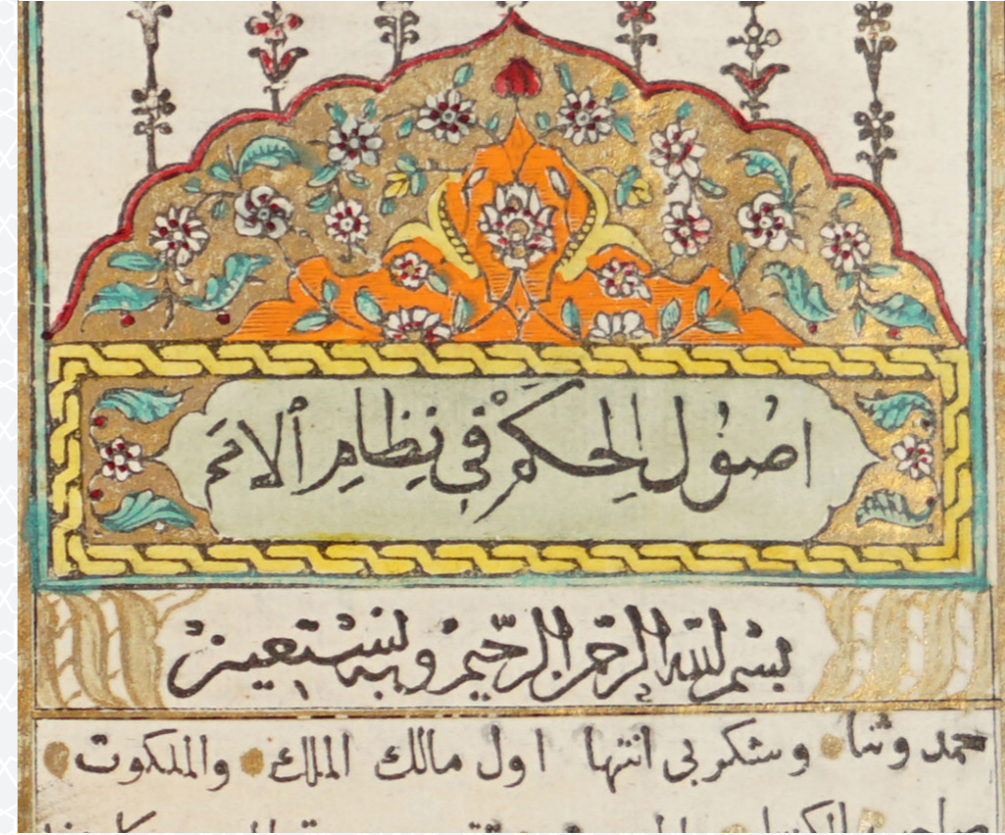 اصول الحكم في نظام الامم
بسم الله الرحمن الرحيم وبه نستعين
حمد وثنا وشكر بی انتها اول مالك الملك والملكوت